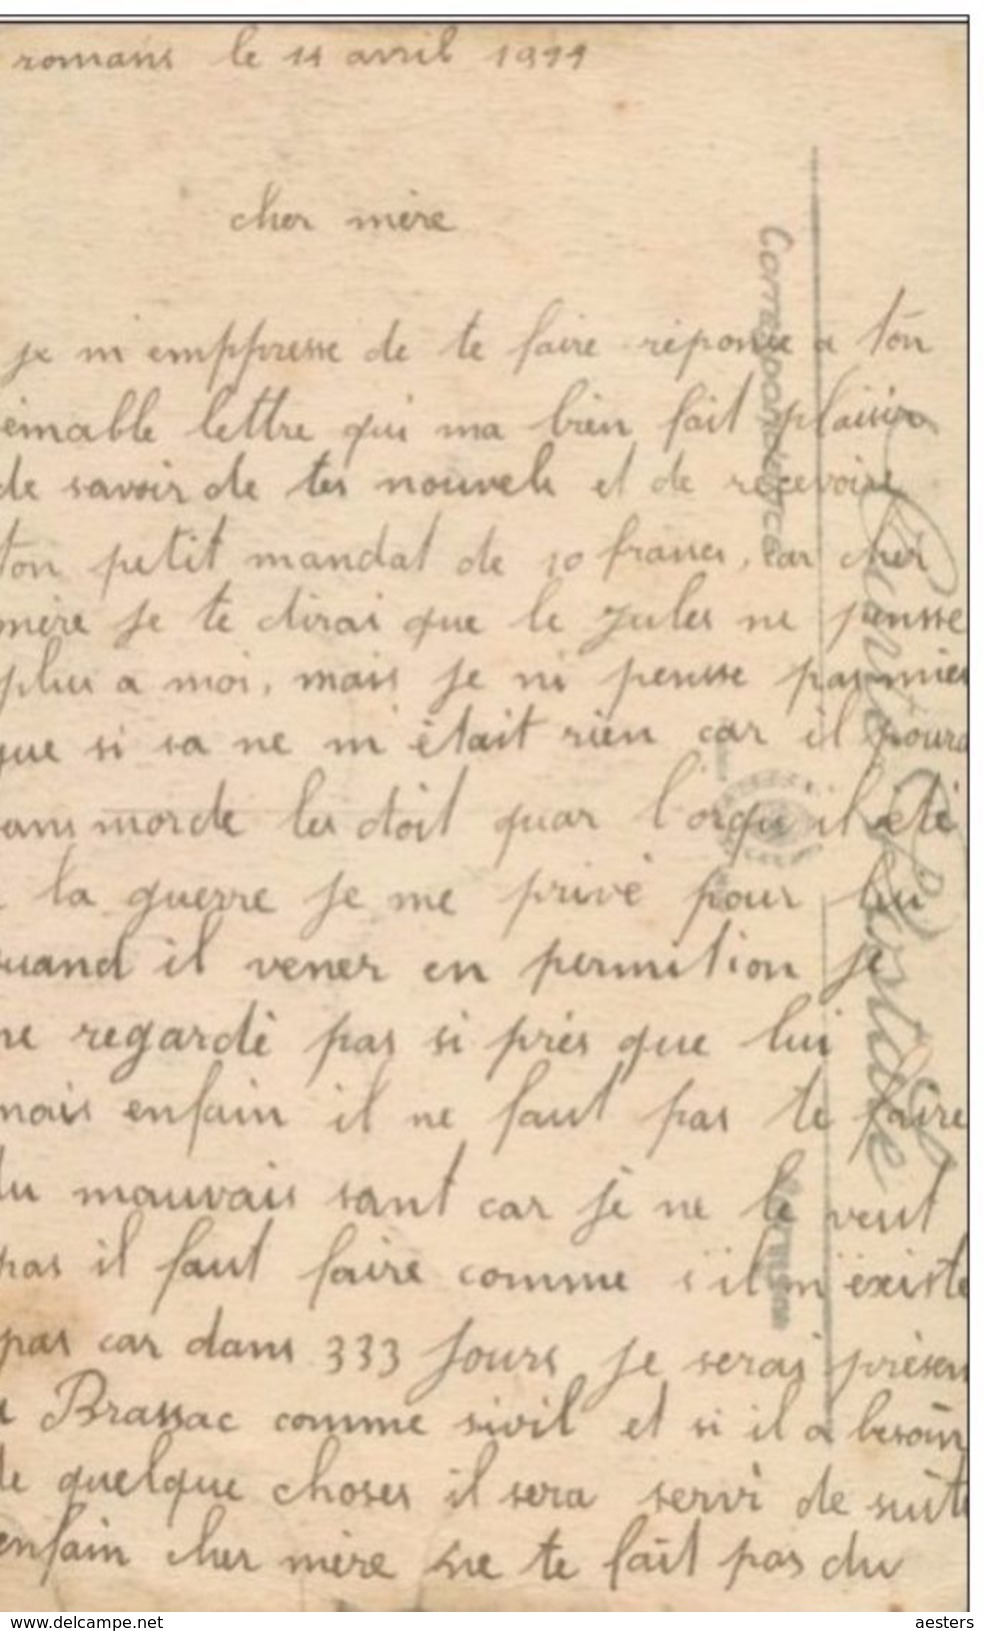 romans le 11 avril 1911
cher mère
je m'emppresse de te faire réponse a ton
émable lettre qui ma bien fait plaisir
de savoir de tes nouvele et de recevoire
ton petit mandat de 10 francs, car cher
mère je te dirai que le Jules ne pensse
plus a moi, mais je ni pensse pas mies
que si sa ne m'était rien car il poura
sans morde les doit quar l'orqu il été
la guerre je me privé pour lui
quand il vener en permition je
ne regardé pas si près que lui
mais enfain il ne faut pas te faire
du mauvais sant car je ne le veut
pas il faut faire comme s'il n'existe
pas car dans 333 jours je serai présen
a Brassac comme sivil et si il a besoin
de quelque choses il sera servi de suite
enfain cher mère ne te fait pas du
Correspondence
Carte Postale
Adresse
www.delcampe.net
aesters